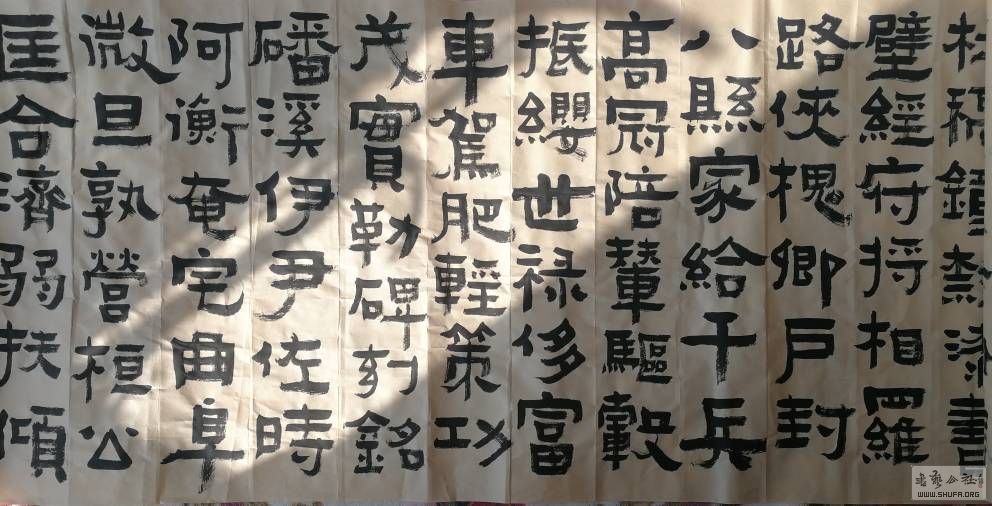 杜稿鍾隸漆書
壁經府将相羅
路俠槐卿户封
八縣家給千兵
高冠陪輦驅轂
振纓世禄侈富
車駕肥輕策功
茂實勒碑刻銘
磻溪伊尹佐時
阿衡奄宅曲阜
微旦孰營桓公
匡合濟弱扶傾
書藝公社
WWW.SHUFA.ORG